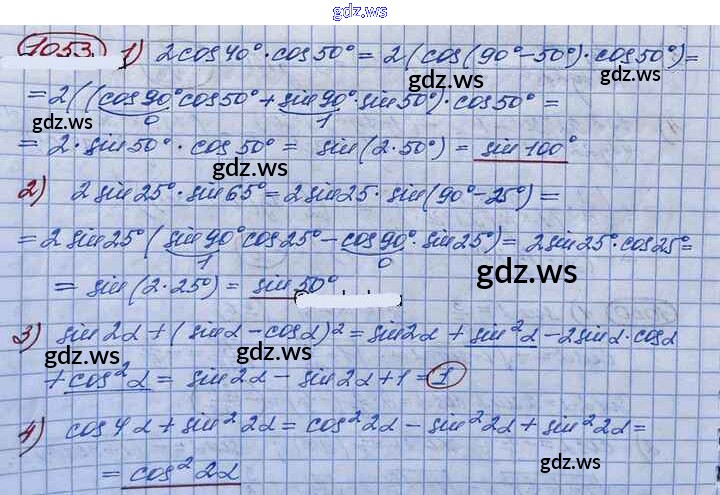 gdz.ws
1053. 1) 2cos40°·cos50° = 2(cos(90°-50°)·cos50°) =
gdz.ws gdz.ws
= 2((cos90°cos50° + sin90°·sin50°)·cos50° =
gdz.ws 0 1
= 2·sin50°·cos50° = sin(2·50°) = sin100°
gdz.ws
2) 2sin25°·sin65° = 2sin25·sin(90°-25°) =
= 2sin25°(sin90°cos25° - cos90°·sin25°) = 2sin25°·cos25° =
1 0 gdz.ws
= sin(2·25°) = sin50°
3) sin2α + (sinα - cosα)² = sin2α + sin²α - 2sinα·cosα
gdz.ws gdz.ws
+ cos²α = sin2α - sin2α + 1 = 1
4) cos4α + sin²2α = cos²2α - sin²2α + sin²2α =
gdz.ws gdz.ws
= cos²2α